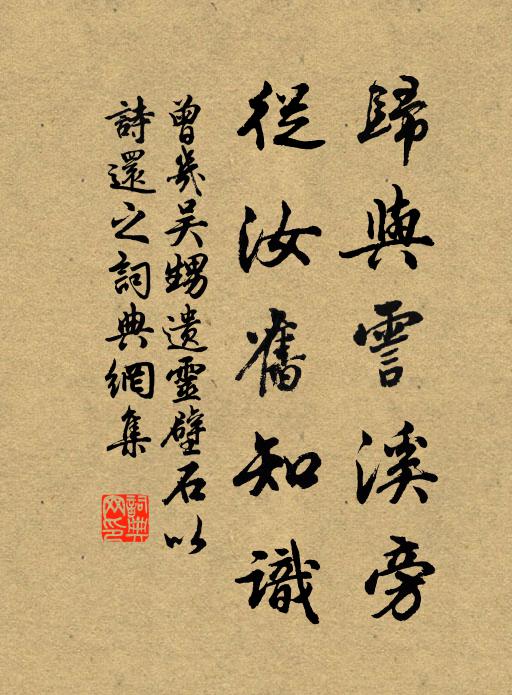 歸與霅溪旁
從汝舊知識
曾幾吳甥遺靈壁石以
詩還之詞典網集
詞典
網印